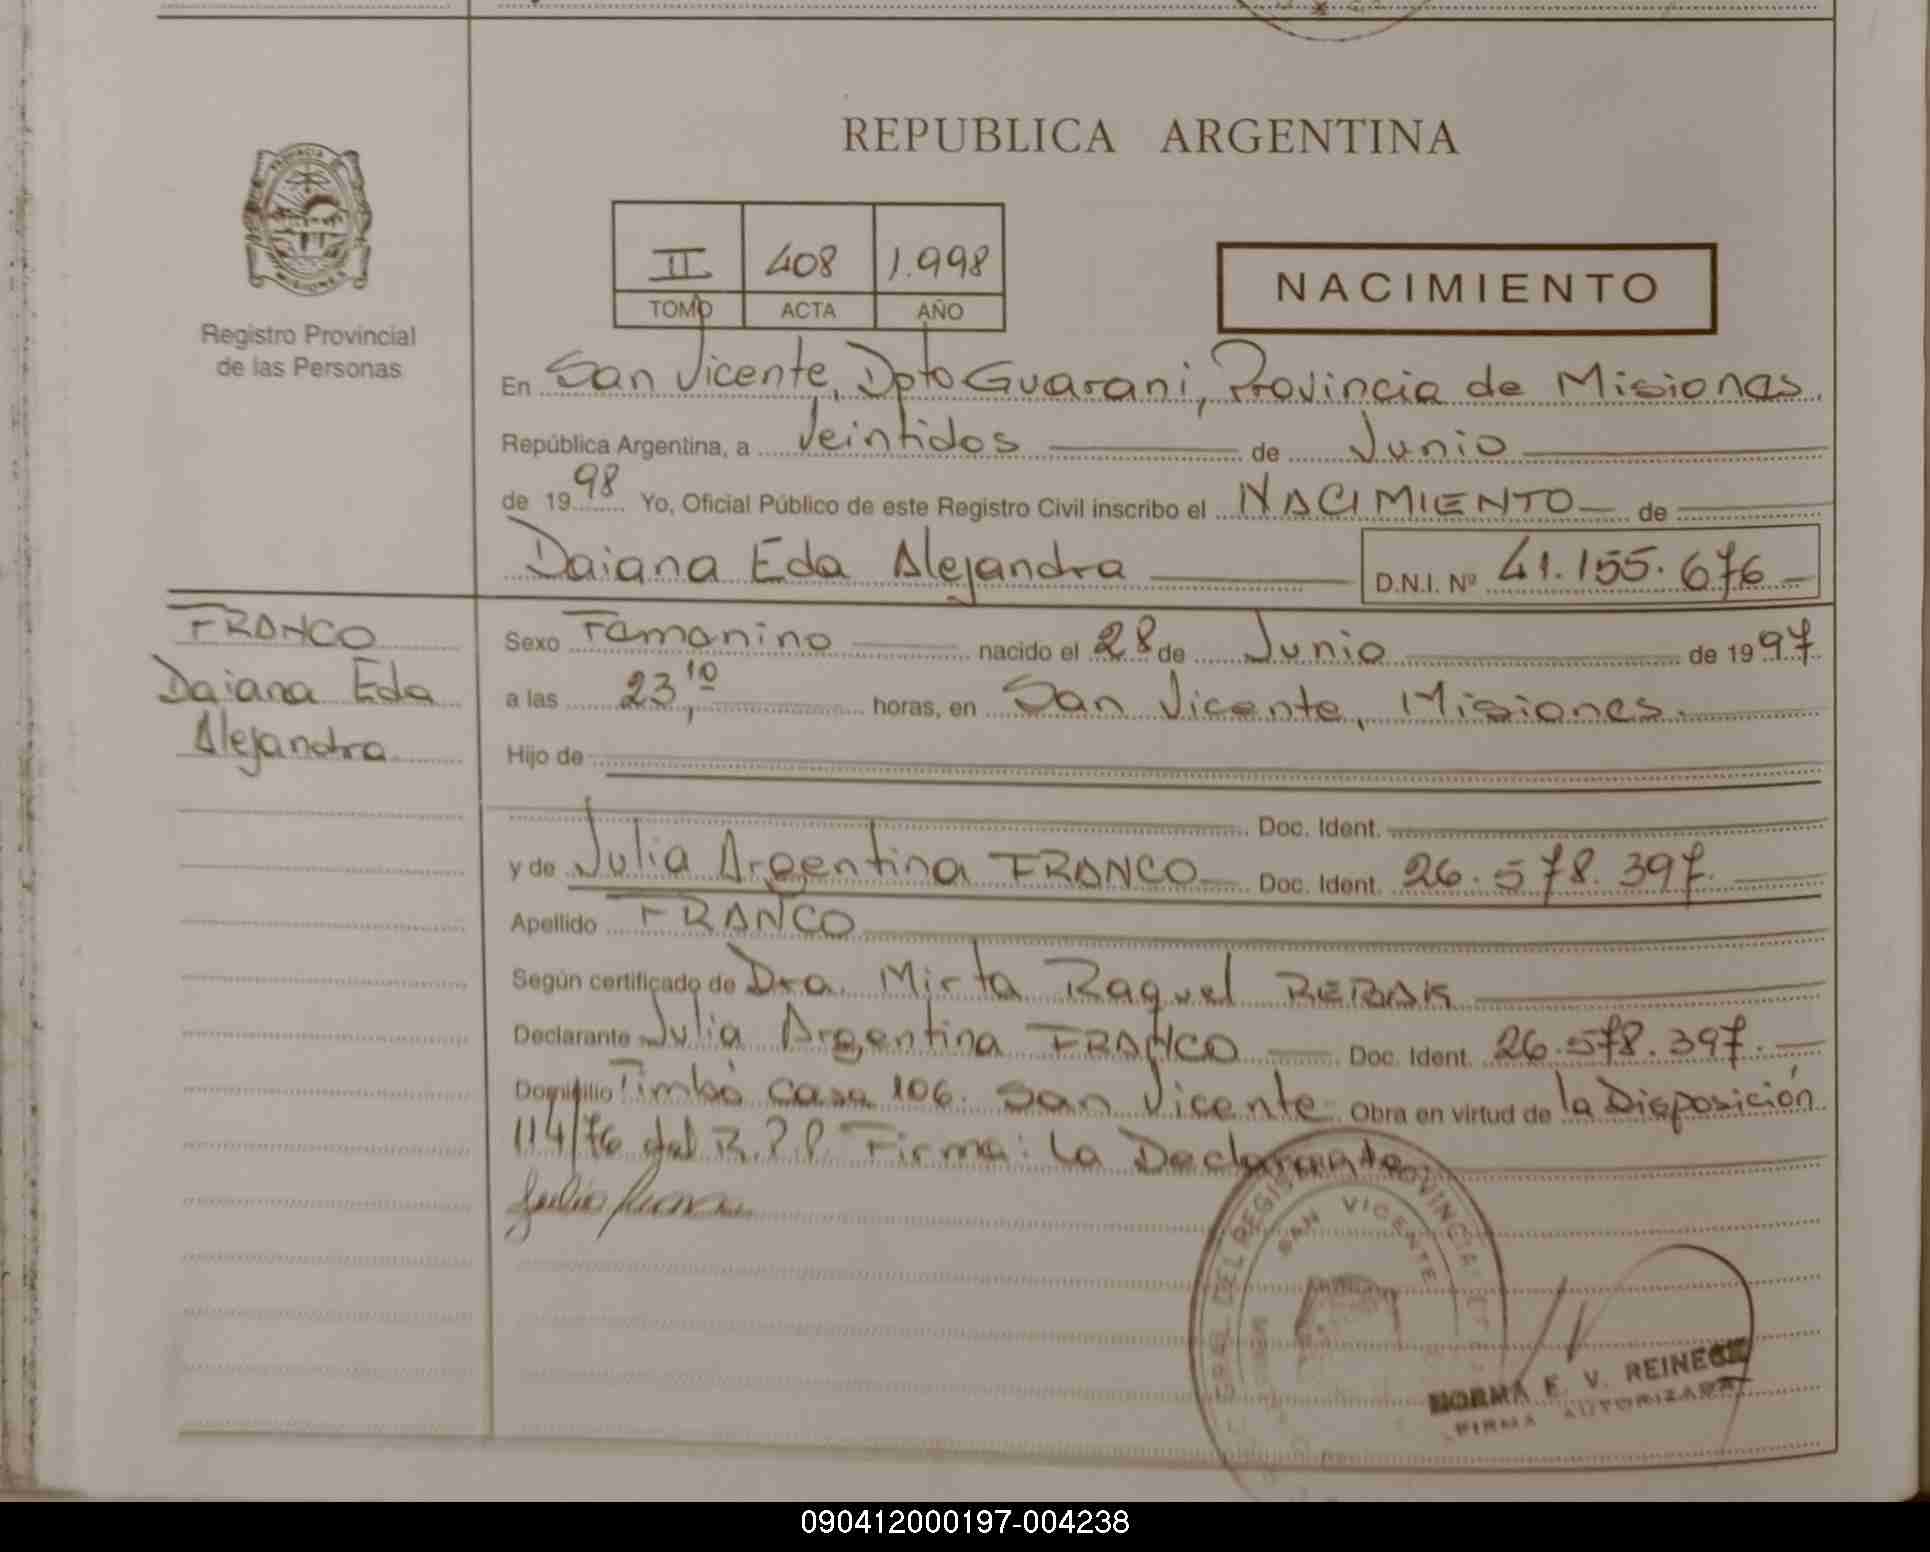 REPUBLICA ARGENTINA
PROVINCIA
MISIONES
Registro Provincial
de las Personas
II 408 1.998
TOMO ACTA AÑO
NACIMIENTO
En San Vicente, Dpto Guarani, Provincia de Misiones.
República Argentina, a Veintidos de Junio
de 1998 Yo, Oficial Público de este Registro Civil inscribo el NACIMIENTO de
Daiana Eda Alejandra D.N.I. Nº 41.155.676
FRANCO
Daiana Eda
Alejandra
Sexo Femenino nacido el 28 de Junio de 1997
a las 23,10 horas, en San Vicente, Misiones.
Hijo de
Doc. Ident.
y de Julia Argentina FRANCO Doc. Ident. 26.578.397.
Apellido FRANCO
Según certificado de Dra. Mirta Raquel REBAK
Declarante Julia Argentina FRANCO Doc. Ident. 26.578.397.
Domicilio Timbó casa 106. San Vicente Obra en virtud de la Disposición
114/76 del R.P.P. Firma: La Declarante
DEL REGISTRO PROVINCIAL
SAN VICENTE
NORMA E. V. REINECK
FIRMA AUTORIZADA
090412000197-004238